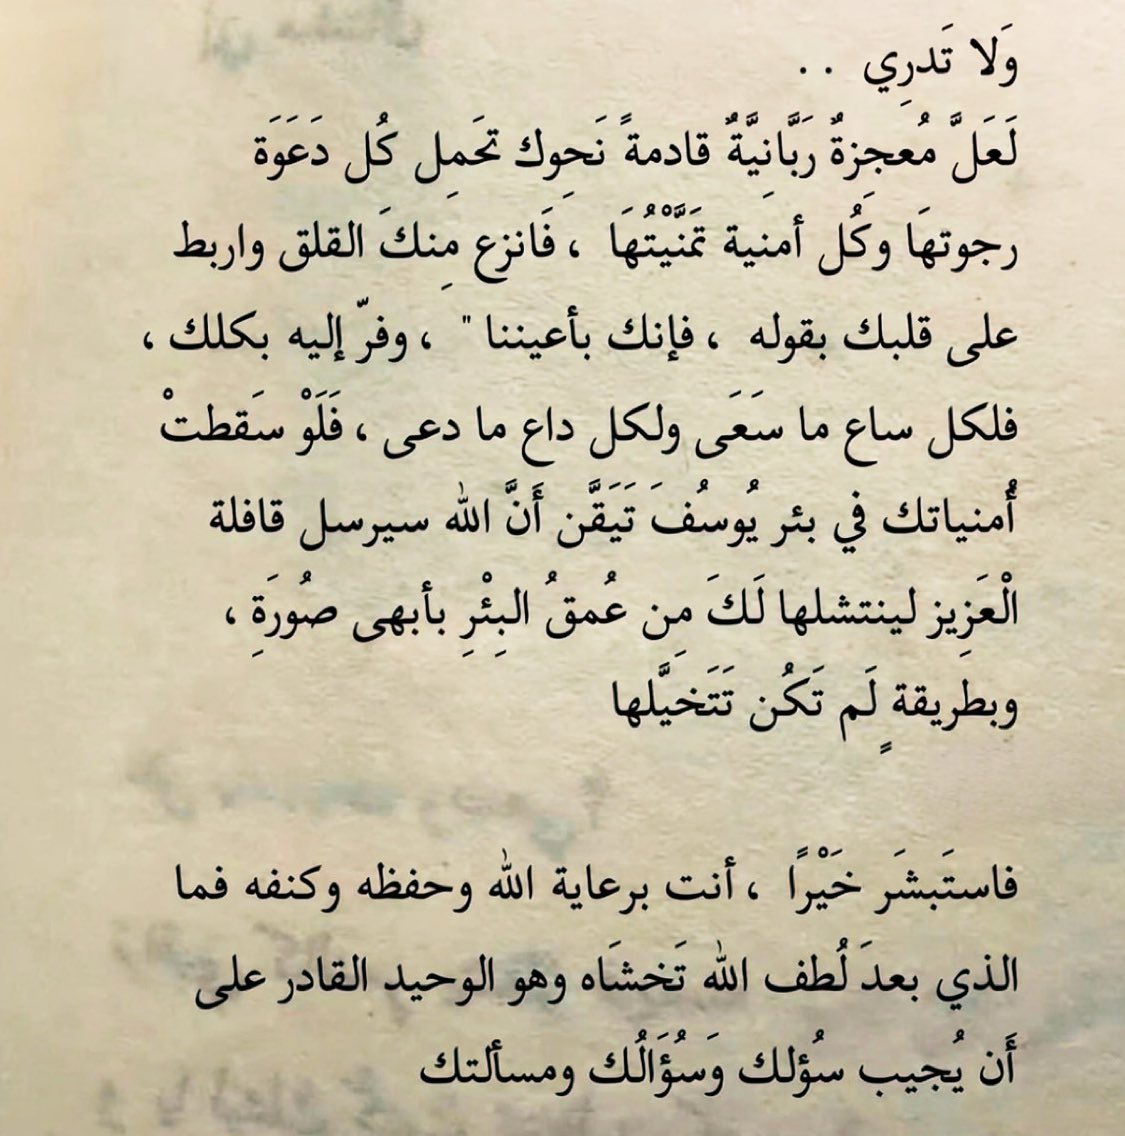 وَلا تَدرِي . .
لَعَلَّ مُعجِزةٌ رَبَّانِيَّةٌ قادمةً نَحِوك تحَمِل كُل دَعَوَة
رجوتهَا وكُل أمنية تمَنَّيْتُهَا ، فَانزع مِنكَ القلق واربط
على قلبك بقوله ، فإنك بأعيننا " ، وفرّ إليه بكلك ،
فلكل ساع ما سَعَى ولكل داع ما دعى ، فَلَوْ سَقطتْ
أُمنياتك في بئر يُوسُفَ تَيَقَّن أَنَّ الله سيرسل قافلة
الْعَزِيز لينتشلها لَكَ مِن عُمقُ البِئْرِ بأبهى صُورَةِ ،
وبطريقةٍ لَم تَكُن تَتَخيَّلها
فاستَبشَر خَيْرًا ، أنت برعاية الله وحفظه وكنفه فما
الذي بعدَ لُطف الله تَخشَاه وهو الوحيد القادر على
أَن يُجيب سُؤلك وَسُؤَالُك ومسألتك